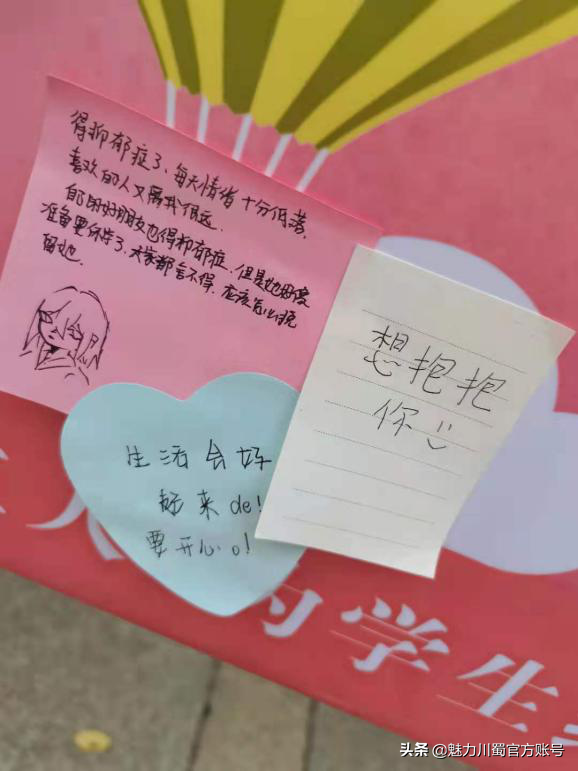 得抑郁症了、每天情绪十分低落、
喜欢的人又离我很远.
好朋友也得抑郁症. 但是她好像
准备要休学了, 大家都舍不得, 应该怎么挽
留她.
想抱抱
你
生活会好
起来de!
要开心o!
学生
头条 @魅力川蜀官方账号